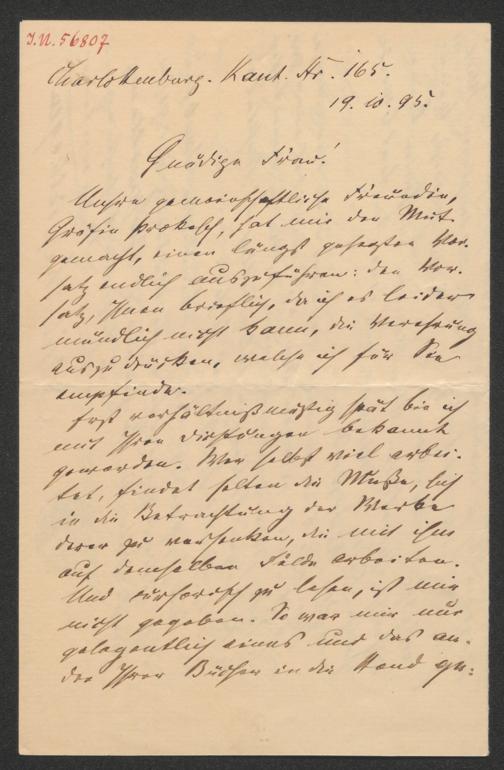 I.N. 56807
Charlottenburg. Kant. Str. 165.
19. 10. 95.
Gnädige Frau!
Unsre gemeinschaftliche Freundin,
Gräfin Prokesch, hat mir den Mut
gemacht, einen längst gehegten Vor-
satz endlich auszuführen: den Vor-
satz, Ihnen brieflich, da ich es leider
mündlich nicht kann, die Verehrung
auszudrücken, welche ich für Sie
empfinde.
Erst verhältnißmäßig spät bin ich
mit Ihren Dichtungen bekannt
geworden. Wer selbst viel arbei-
tet, findet selten die Muße, sich
in die Betrachtung der Werke
derer zu versenken, die mit ihm
auf demselben Felde arbeiten.
Und cursorisch zu lesen, ist mir
nicht gegeben. So war mir nur
gelegentlich eines und das an-
dre Ihrer Bücher in die Hand ge-